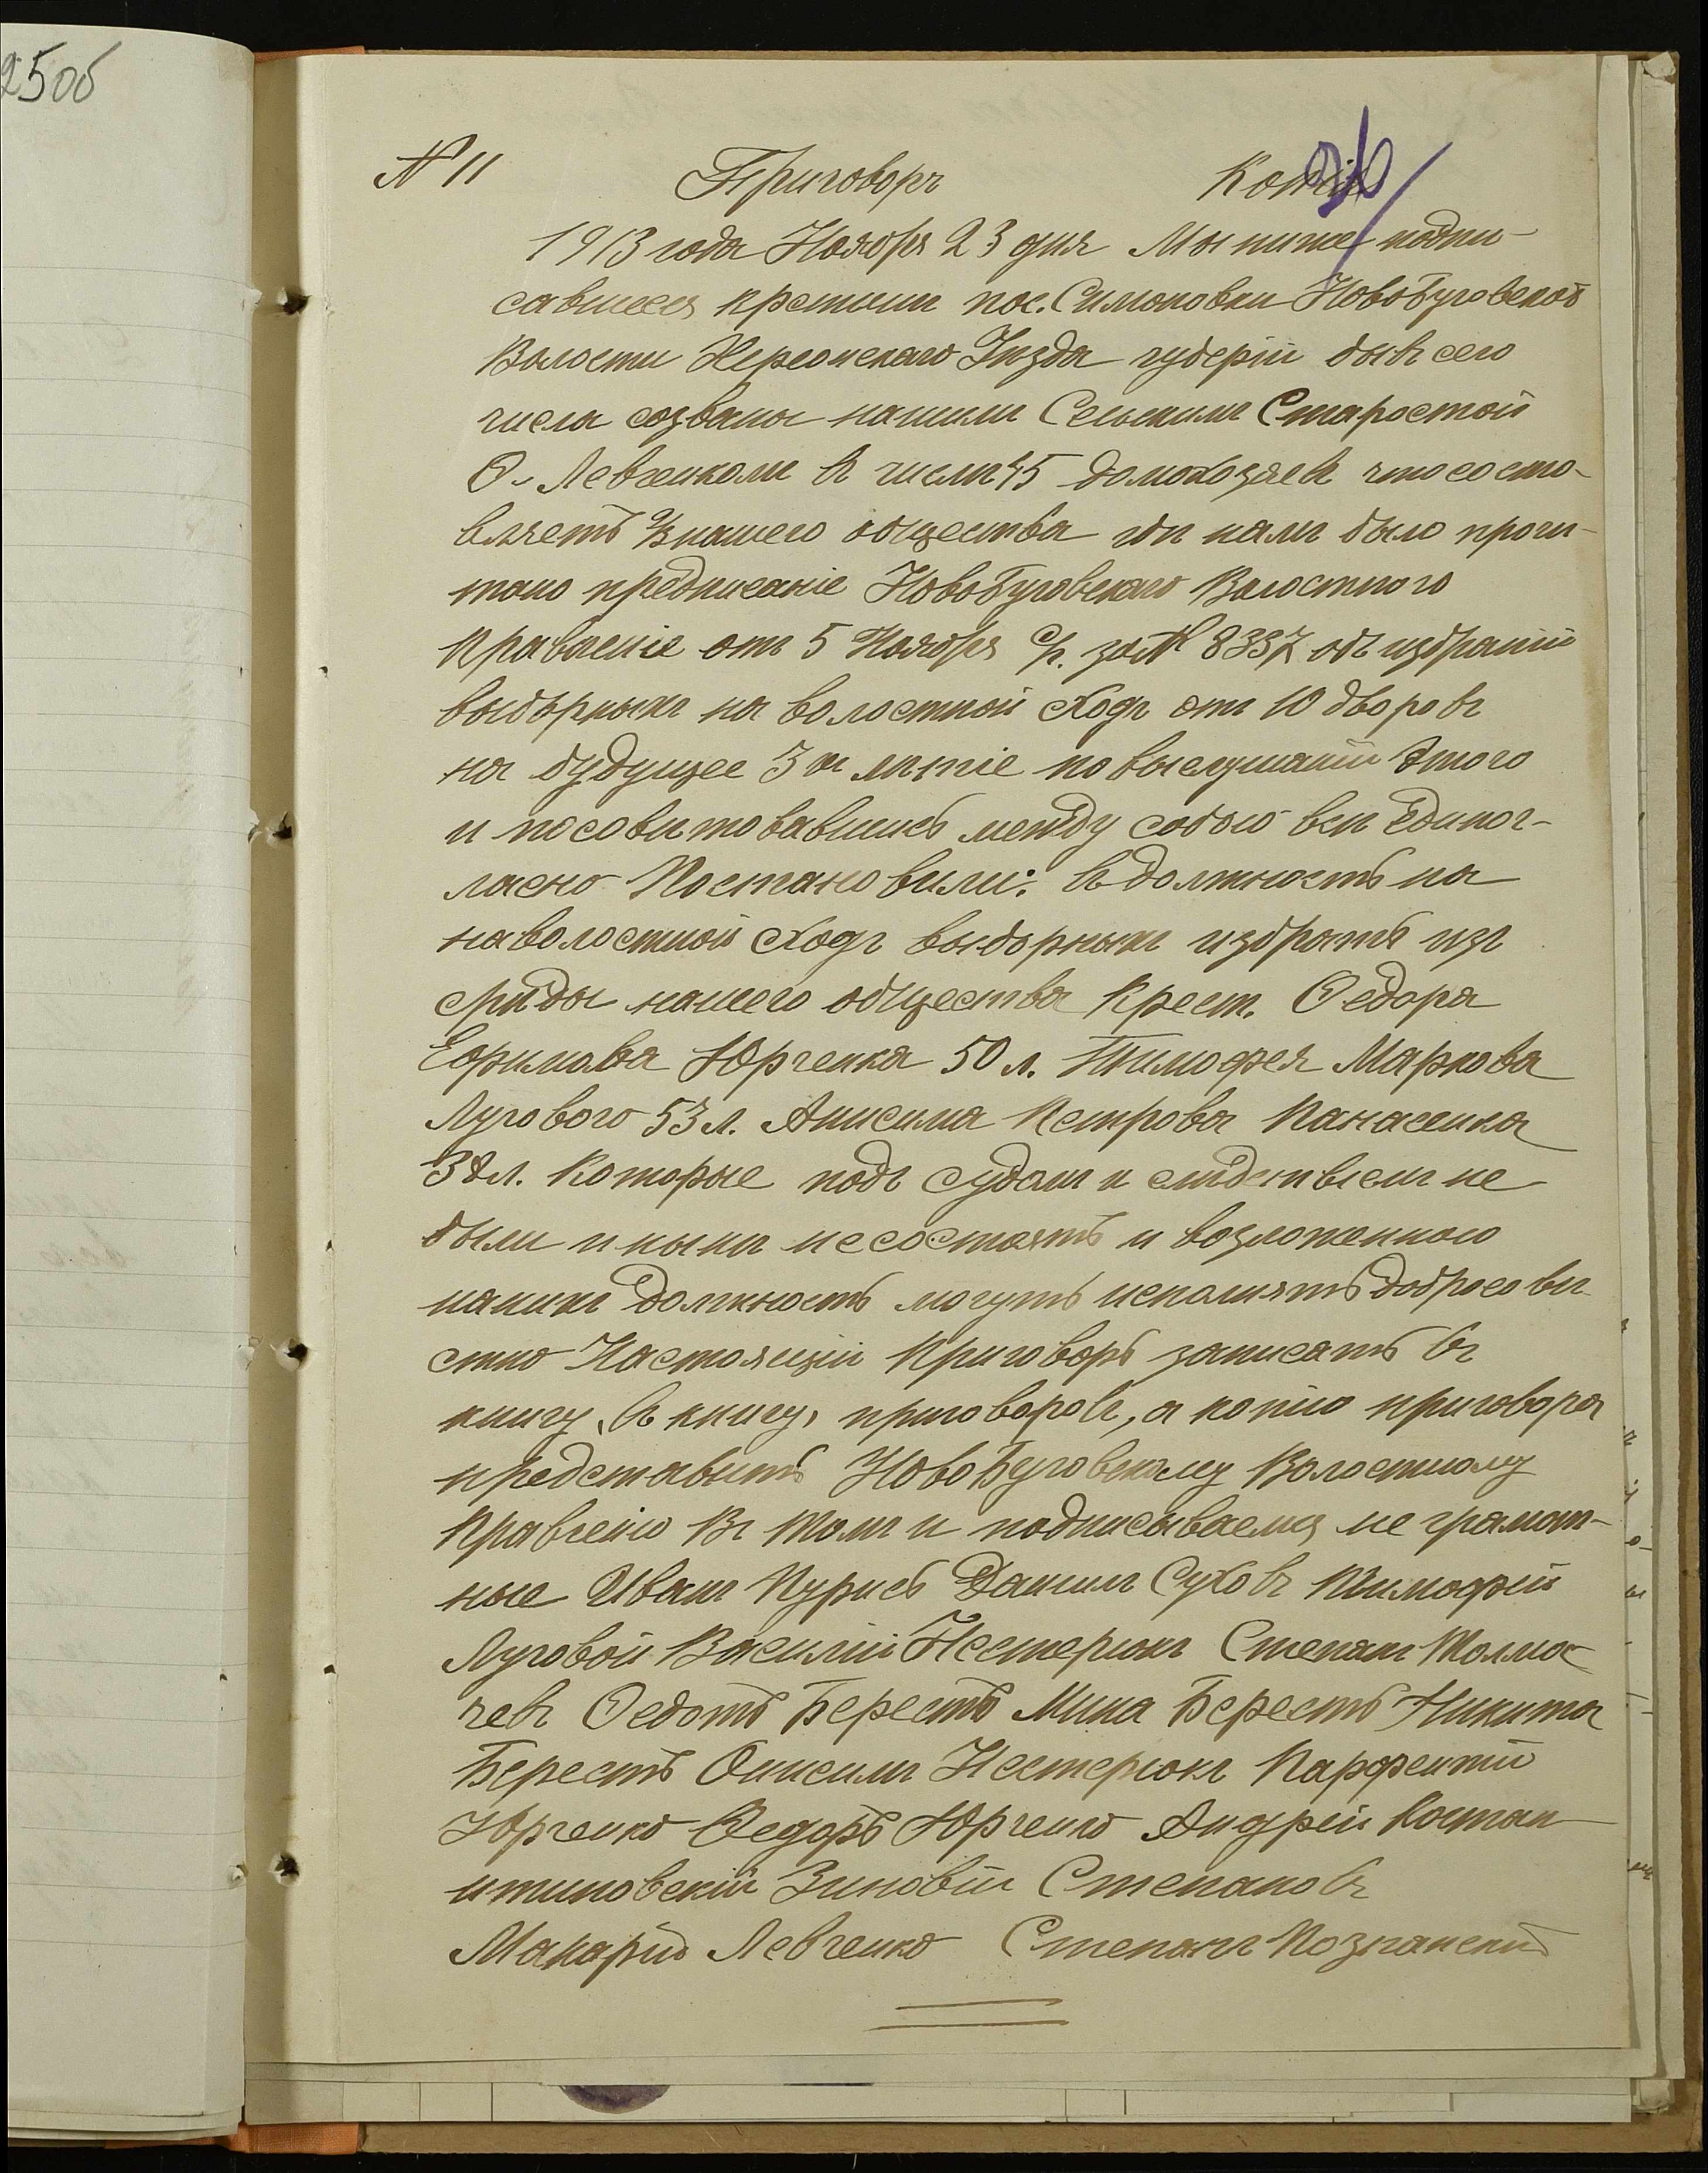 25об
№ 11 Приговоръ Копія
26
1913 года Ноября 23 дня Мы ниже подпи-
савшеся крстяни пос. Симоновки НовоБуговской
Волости Херсонскаго Уизда губерій бывъ сего
числа созваны нашимъ Селькимъ Старостой
Ѳ. Левченкомъ въ числѣ 45 домохозяевъ что соста-
вляетъ ⅔ нашего общества гдѣ намъ было прочи-
тано предписаніе НовоБуговскаго Волостного
Правленіе отъ 5 Ноября с/г. за № 8337 объ избраніи
выборныхъ на волостной сходъ отъ 10 дворовъ
на будущее 3хъ лѣтіе по выслушаніи этого
и посовѣтовавшись между собою всѣ единог-
ласно Постановили: въ должность на
на волостной сходъ выборныхъ избрать изъ
среды нашего общества Крест. Ѳедора
Ефимова Юрченка 50 л. Тимофея Маркова
Лугового 53 л. Анисима Петрова Панасенка
38 л. Которые подъ судомъ и слѣдствіемъ не
были и нынѣ не состоятъ и возложенною
нанихъ должность могутъ исполнять добросовѣ
стно Настоящій Приговоръ записать въ
книгу, въ книгу, приговоровъ, а копію приговора
представить НовоБуговскому Волостному
Правленію Въ томъ и подписываемся не грамот-
ные Иванъ Пурисъ Данилъ Суховъ Тимофей
Луговой Василій Нестерюкъ Степанъ Толма-
чевъ Ѳедотъ Берестъ Мина Берестъ Никита
Берестъ Онисимъ Нестерюкъ Парфентій
Юрченко Ѳедоръ Юрченко Андрей Костан
тиновскій Зиновій Степановъ
Макарій Левченко Степанъ Познанскій